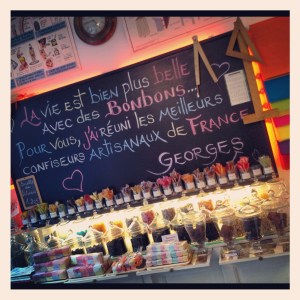 La vie est bien plus belle
avec des Bonbons...
Pour vous, j'ai réuni les meilleurs
confiseurs artisanaux de France
Georges